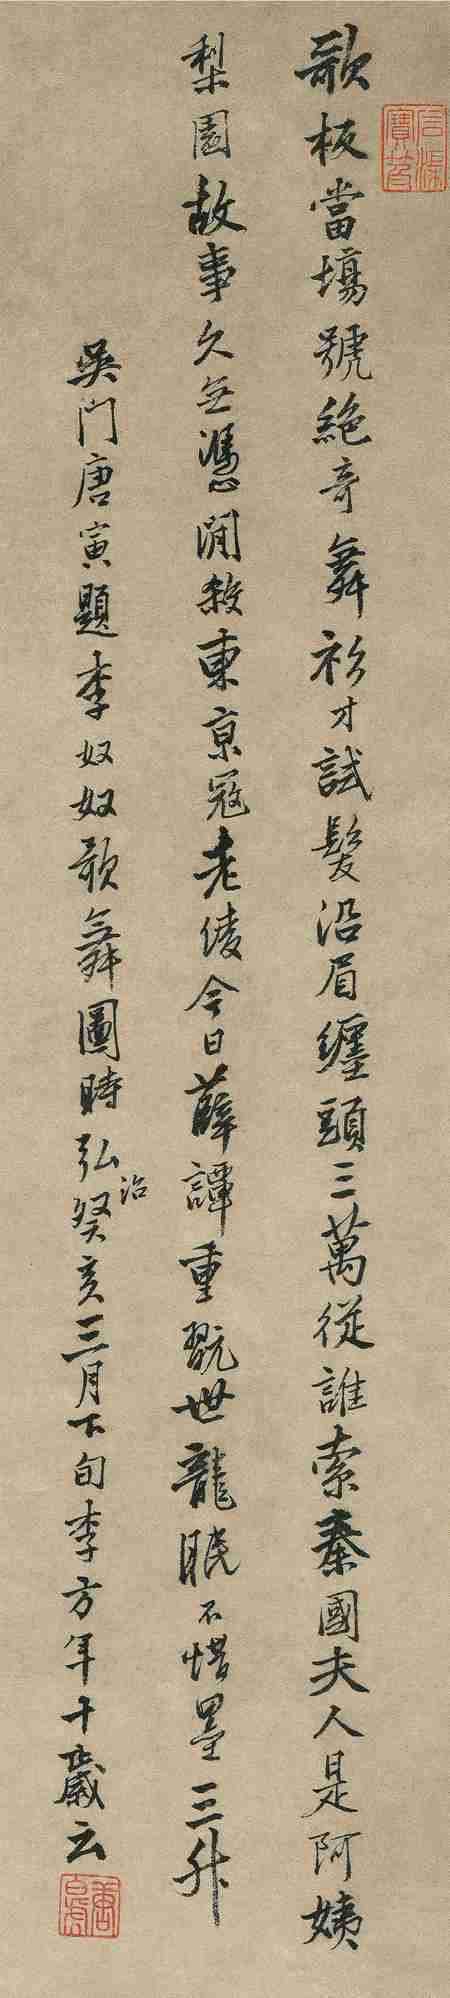 歌板當場號絕奇舞衫才試髮沿眉纏頭三萬從誰索秦國夫人是阿姨
梨園故事久無憑閒殺東京冦老倰今日薛譚重翫世龍眠不惜墨三升
吳門唐寅題李奴奴歌舞圖時弘治癸亥三月下旬李方年十歲云
石渠寶笈
唐白虎